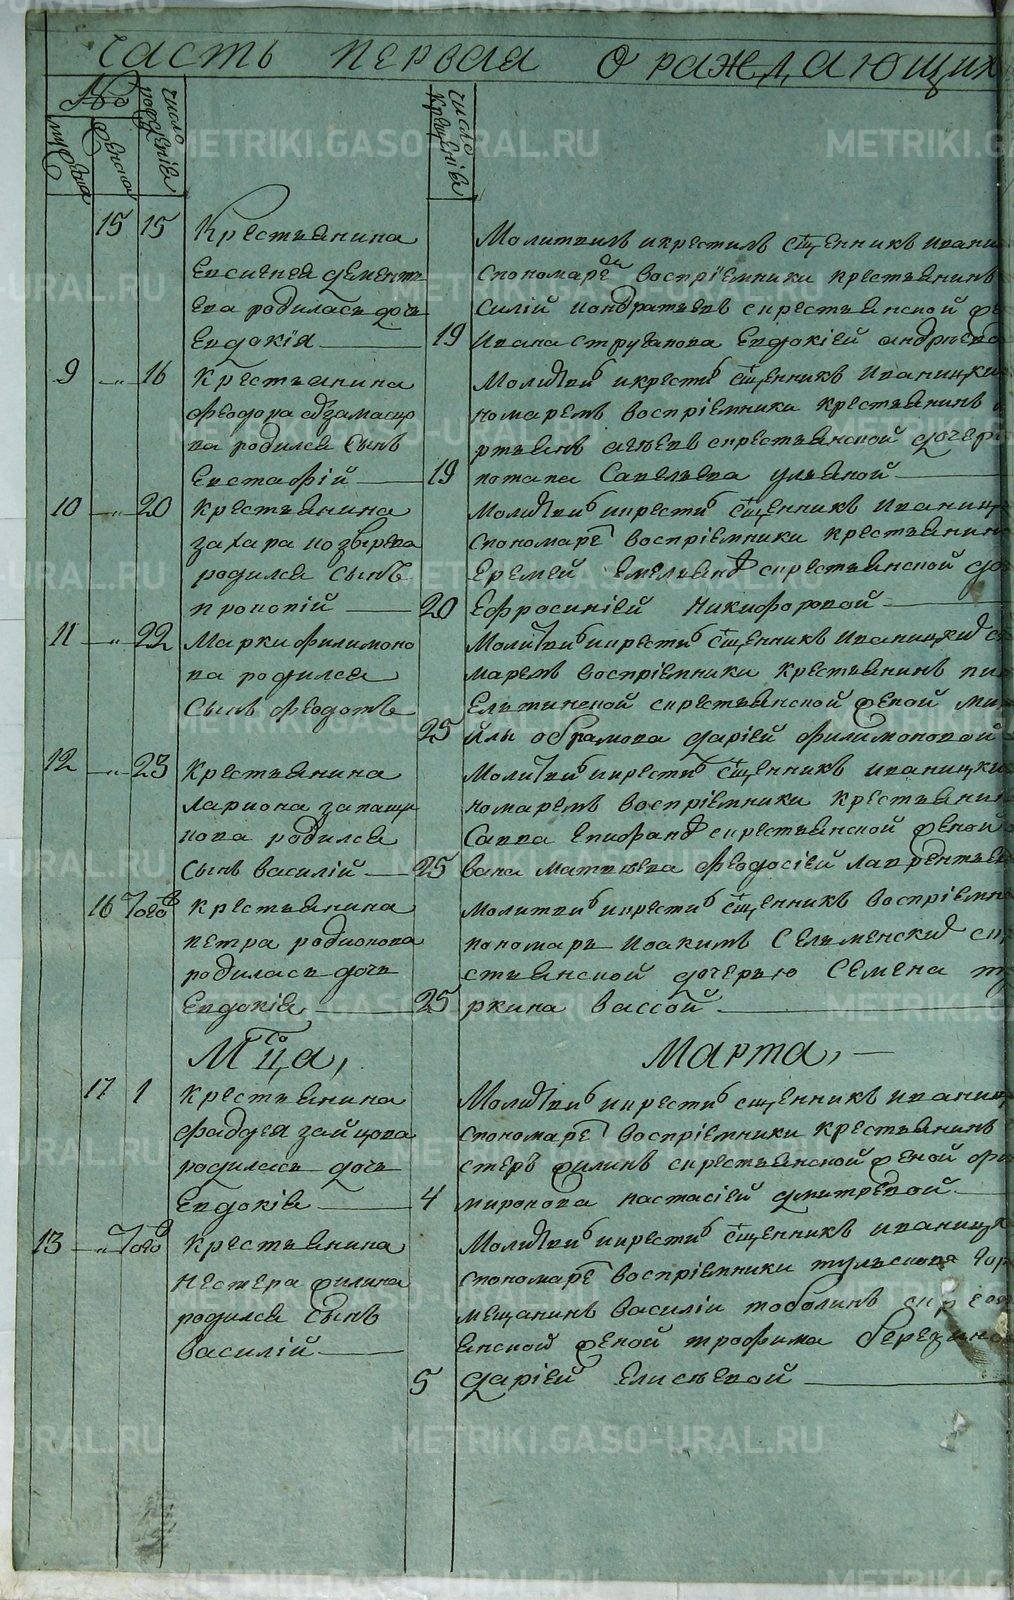 Часть первая о раждающихс
№
число рожденія
число крещенія
мужеска
женска
15 15 Крестьянина
Евсигнея Дементь
ева родилась дочь
Евдокія
19
Молитвилъ икрестилъ сщенникъ Ивани
спономаре воспріемники крестьянинъ
силій кондратьевъ скрестьянской
Ивана струганова Евдокіей андреево
9 16 Крестьянина
Феодора арзамасцо
ва родился сынъ
Евстафій
19
Молитви икрести сщенникъ Иваницки
номаремъ воспріемники крестьянинъ
скрестьянской дочери
потапа Савельева ульяной
10 20 Крестьянина
захара козырева
родился сынъ
прокопій
20
Молитви икрести сщенникъ Иваниц
спономаре воспріемники крестьянин
Еремей Емельян скрестьянской до
Ефросиніей Никифоровой
11 22 Марки филимоно
ва родился
Сынъ Феодотъ
25
Молитви икрести сщенникъ Иваницки с
маремъ воспріемники крестьянинъ
скрестьянской женой ми
йлы абрамова дарьей филимоновой
12 23 Крестьянина
Лариона запащи
кова родился
Сынъ василій
25
Молитви икрести сщенникъ иваницки
номаремъ воспріемники крестьянин
Савва епифан скрестьянской женой
вана матвеева феодосіей лаврентьев
16 Того Крестьянина
петра родионова
родилась дочь
Евдокія
25
Молитви икрести сщенникъ воспріемн
пономарь иоакимъ Сельменски скр
стьянской дочерью Семена т
ркина вассой
Мца, Марта,
17 1 Крестьянина
фадея зайцова
родилась дочь
Евдокія
4
Молитви икрести сщенникъ иваниц
спономаре воспріемники крестьянинъ
стеръ филинъ скрестьянской женой
миронова настасіей дмитревой
13 Того Крестьянина
нестера филина
родился сынъ
василій
5
Молитви икрести сщенникъ иваницк
спономаре воспріемники тульскова гор
мещанинъ василіи тоболинъ скрестья
янской женой трофима березино
дарьей елисеевой
METRIKI.GASO-URAL.RU